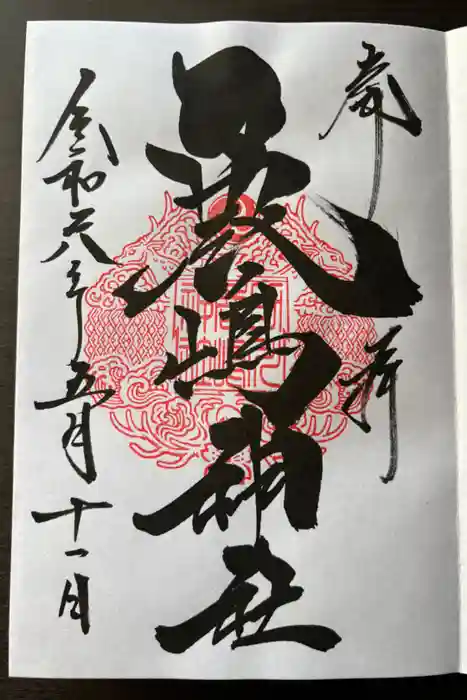 奉拝
嚴嶋神社
令和元年五月十一日